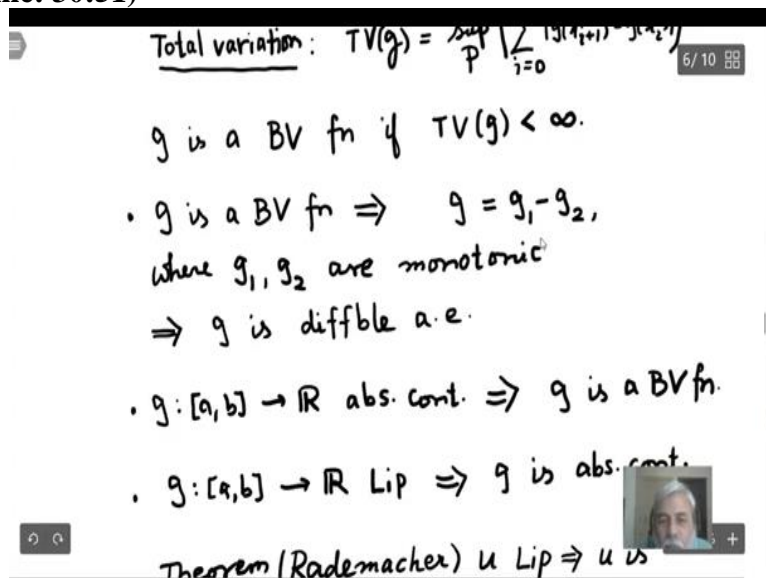 Total variation: TV(g) = sup_P |∑_{i=0} |g(x_{i+1}) - g(x_i)|
6/10
g is a BV fn if TV(g) < ∞.
• g is a BV fn ⇒ g = g₁-g₂,
where g₁, g₂ are monotonic
⇒ g is diffble a.e.
• g: [a,b] → ℝ abs. cont. ⇒ g is a BV fn.
• g: [a,b] → ℝ Lip ⇒ g is abs. cont.
Theorem (Rademacher) u Lip ⇒ u is